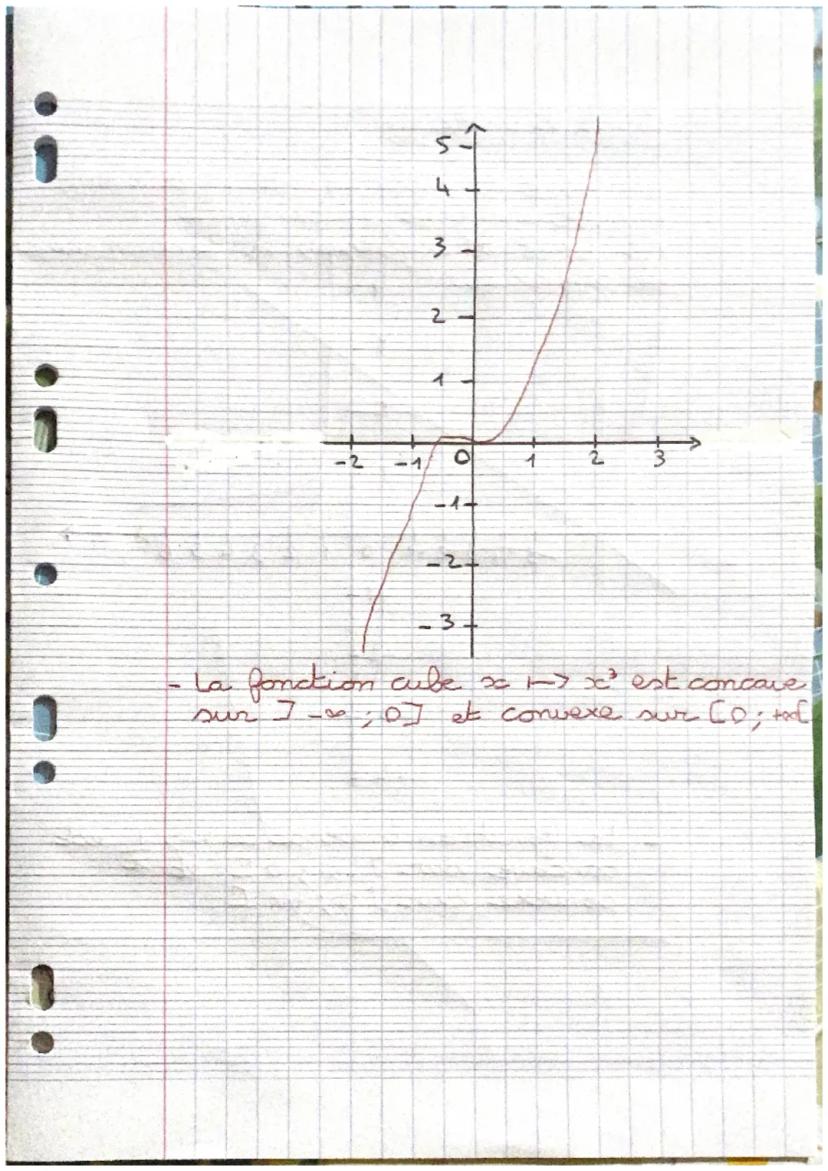 5
4
3
2
1
-2 -1 0 1 2 3
-1
-2
-3
- La fonction cube x ↦ x³ est concave
sur ]-∞ ; 0] et convexe sur [0 ; +∞[